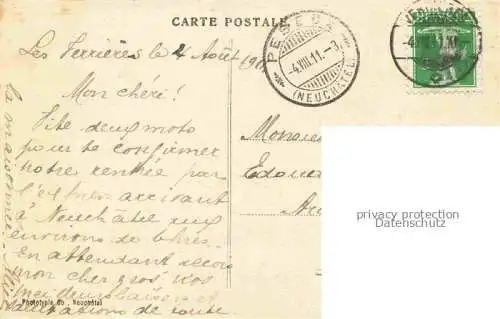 CARTE POSTALE
Les Verrières le 4 Août 191
Mon chéri!
Vite deux mots
pour te confirmer
notre rentrée par
l'express arrivant
à Neuchâtel aux
environs de
En attendant reçois
mon cher gros nos
meilleurs baisers et
de toute
la maisonnée.
PESEUX
-4.VIII.11.-3
(NEUCHATEL)
-4.VIII.11.XI
Monsieur
Edouard
privacy protection
Datenschutz
Phototypie Co., Neuchâtel